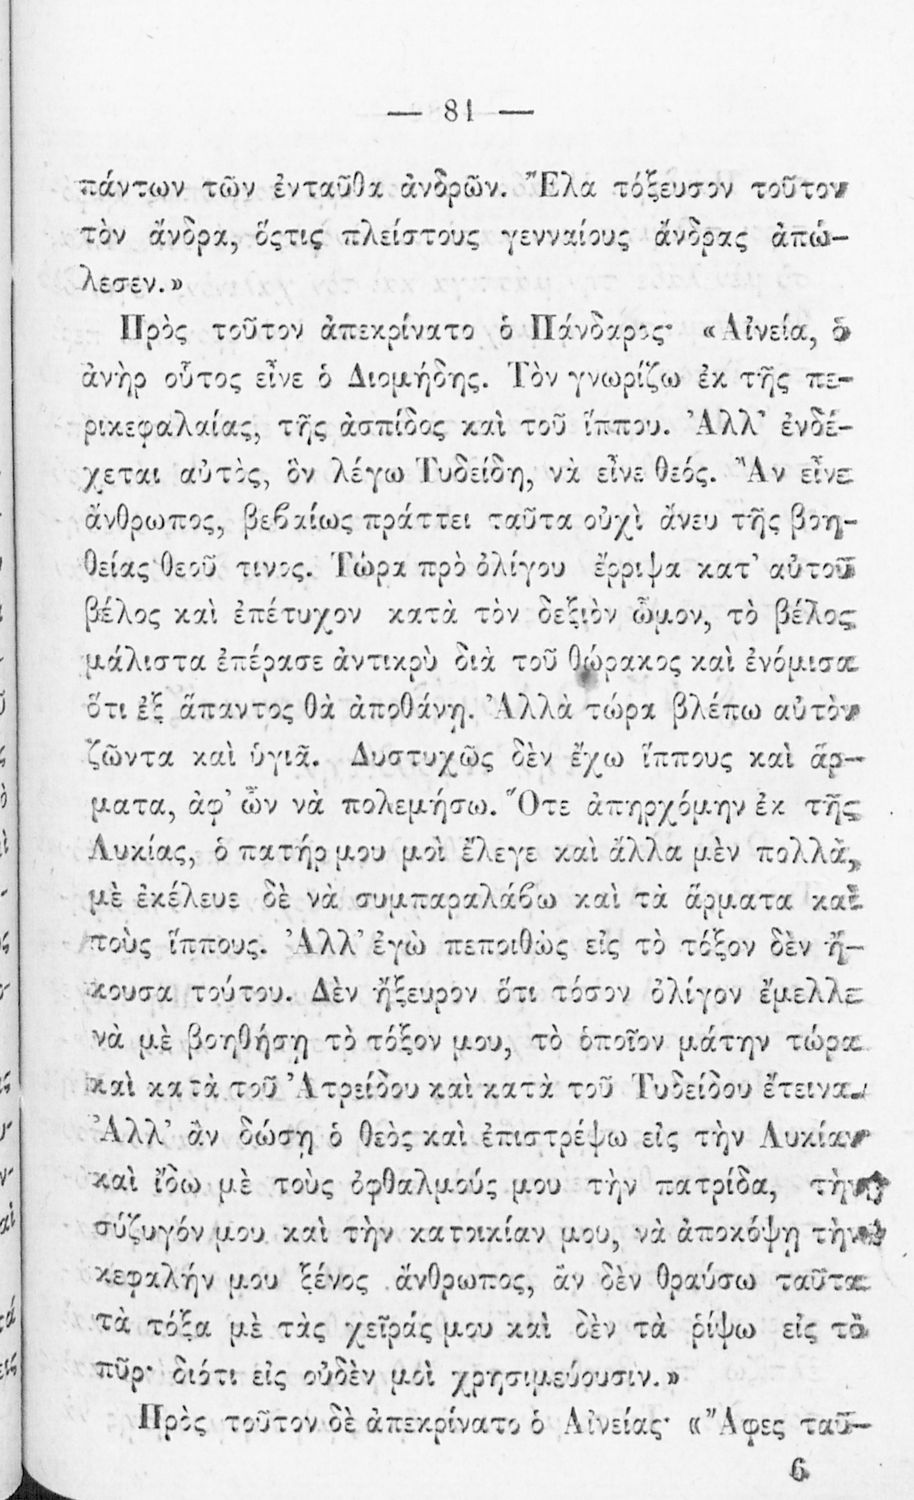 — 81 —
πάντων τῶν ἐνταῦθα ἀνδρῶν. Ἔλα τόξευσον τοῦτον
τὸν ἄνδρα, ὅςτις πλείστους γενναίους ἄνδρας ἀπώ-
λεσεν.»
Πρὸς τοῦτον ἀπεκρίνατο ὁ Πάνδαρος· «Αἰνεία, ὁ
ἀνὴρ οὗτος εἶνε ὁ Διομήδης. Τὸν γνωρίζω ἐκ τῆς πε-
ρικεφαλαίας, τῆς ἀσπίδος καὶ τοῦ ἵππου. Ἀλλ’ ἐνδέ-
χεται αὐτὸς, ὃν λέγω Τυδείδη, νὰ εἶνε θεός. Ἂν εἶνε
ἄνθρωπος, βεβαίως πράττει ταῦτα οὐχὶ ἄνευ τῆς βοη-
θείας θεοῦ τινος. Τώρα πρὸ ὀλίγου ἔρριψα κατ’ αὐτοῦ
βέλος καὶ ἐπέτυχον κατὰ τὸν δεξιὸν ὦμον, τὸ βέλος
μάλιστα ἐπέρασε ἀντικρὺ διὰ τοῦ θώρακος καὶ ἐνόμισα
ὅτι ἐξ ἅπαντος θὰ ἀποθάνῃ. Ἀλλὰ τώρα βλέπω αὐτὸν
ζῶντα καὶ ὑγιᾶ. Δυστυχῶς δὲν ἔχω ἵππους καὶ ἅρ-
ματα, ἀφ’ ὧν νὰ πολεμήσω. Ὅτε ἀπηρχόμην ἐκ τῆς
Λυκίας, ὁ πατήρ μου μοὶ ἔλεγε καὶ ἄλλα μὲν πολλὰ,
μὲ ἐκέλευε δὲ νὰ συμπαραλάβω καὶ τὰ ἅρματα καὶ
τοὺς ἵππους. Ἀλλ’ ἐγὼ πεποιθὼς εἰς τὸ τόξον δὲν ἤ-
κουσα τούτου. Δὲν ἤξευρον ὅτι τόσον ὀλίγον ἔμελλε
νὰ μὲ βοηθήσῃ τὸ τόξον μου, τὸ ὁποῖον μάτην τώρα
καὶ κατὰ τοῦ Ἀτρείδου καὶ κατὰ τοῦ Τυδείδου ἔτεινα.
Ἀλλ’ ἂν δώσῃ ὁ θεὸς καὶ ἐπιστρέψω εἰς τὴν Λυκίαν
καὶ ἴδω μὲ τοὺς ὀφθαλμούς μου τὴν πατρίδα, τὴν
σύζυγόν μου καὶ τὴν κατοικίαν μου, νὰ ἀποκόψῃ τὴν
κεφαλήν μου ξένος ἄνθρωπος, ἂν δὲν θραύσω ταῦτα
τὰ τόξα μὲ τὰς χεῖράς μου καὶ δὲν τὰ ῥίψω εἰς τὸ
πῦρ· διότι εἰς οὐδὲν μοὶ χρησιμεύουσιν.»
Πρὸς τοῦτον δὲ ἀπεκρίνατο ὁ Αἰνείας· «Ἄφες ταῦ-
6